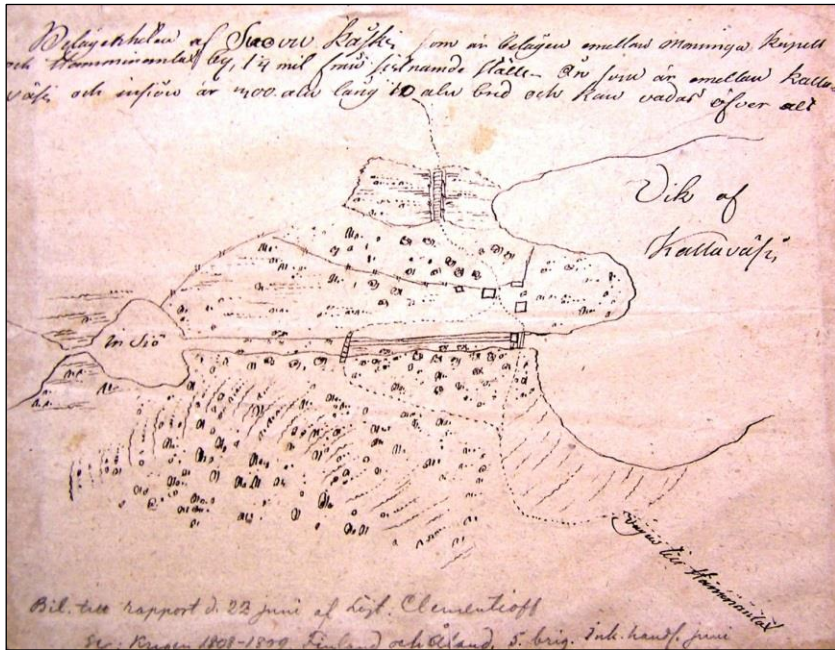 Belägenheten af Suovu Kåski, som är belägen emellan Maninga Kapell
och Hamminanlax by, 1/4 mil från sistnamde ställe. Ån som är emellan Kalla-
väsi och insiön är 700 aln lång 10 aln bred och kan vadas öfver alt
Vik af
Kallaväsi
in Siö
Vägen till Hamminanlax
Bil. till rapport d. 22 juni af löjt. Clementeoff
Sv. Krigen 1808-1809. Finland och Åland, 5. brig. Ink. handl. juni